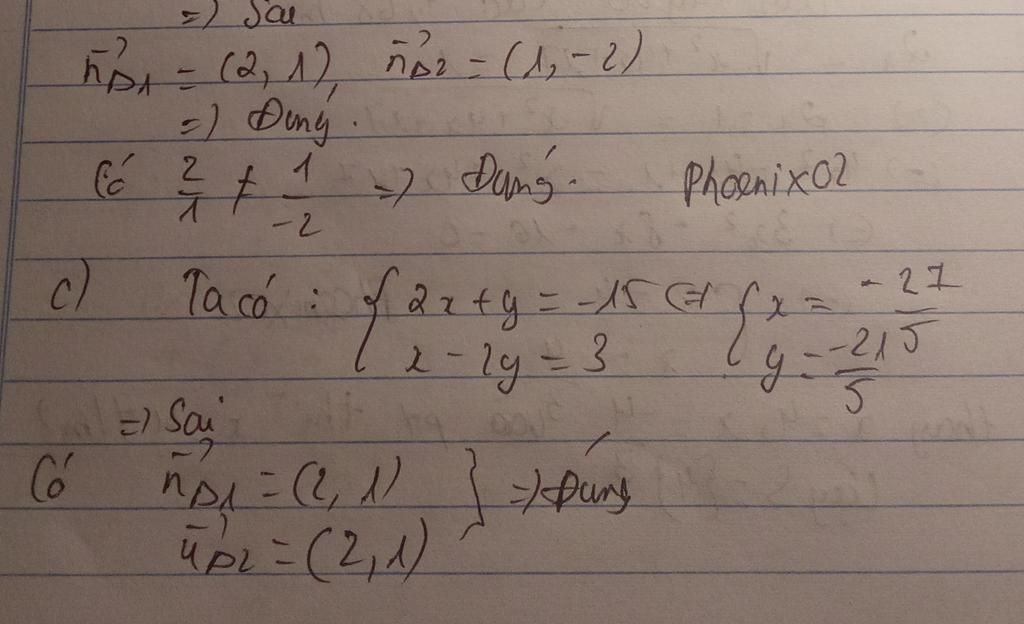 => Sai
n⃗Δ1 = (2, 1), n⃗Δ2 = (1, -2)
=> Đúng.
Có 2/1 ≠ 1/-2 => Đúng. Phoenix02
c) Ta có : { 2x + y = -15 <=> { x = -27/5
x - 2y = 3 y = -21/5
=> Sai
Có n⃗Δ1 = (2, 1) } => Đúng
u⃗Δ2 = (2, 1)